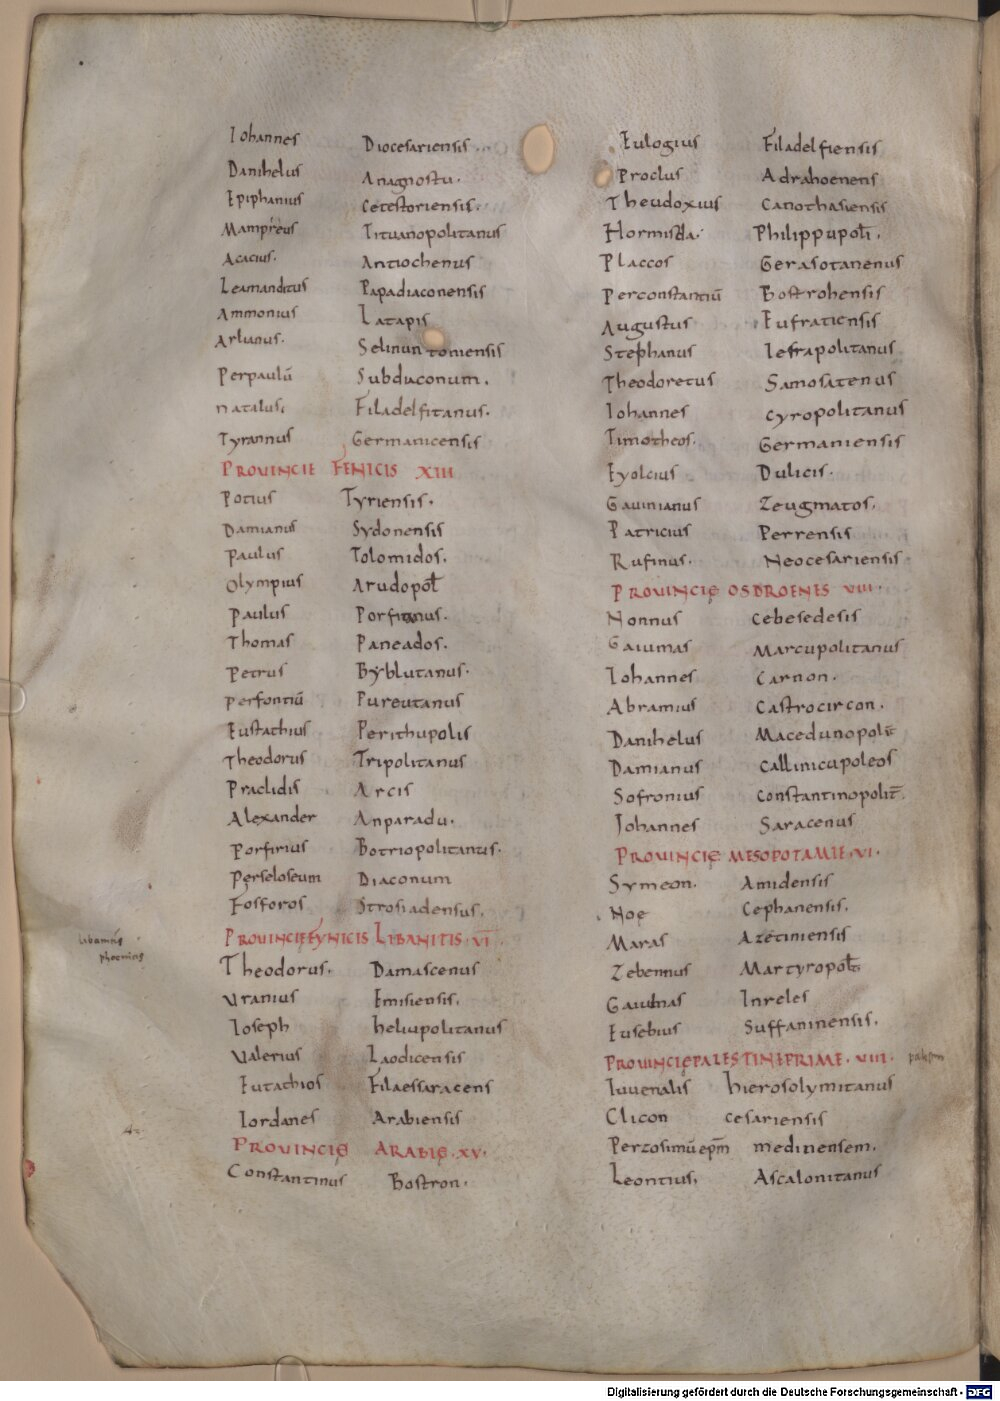 Iohannes Diocesariensis
Danihelus Anagnostu.
Epiphanius Cetestoriensis.
Mampreus Tituanopolitanus
Acacius. Antiochenus
Leamanditus Papadiaconensis
Ammonius Latapis
Arlunus. Selinuntoniensis
Perpaulū Subdiaconum.
Natalus. Filadelfitanus.
Tyrannus Germanicensis
PROVINCIE FENICIS XIII
Potius Tyriensis.
Damianus Sydonensis
Paulus Tolomidos.
Olympius Arudopol̄
Paulus
Thomas Paneados.
Petrus Byblutanus.
Perfontiū Pureutanus
Eustathius Perithupolis
Theodorus Tripolitanus
Praclidis Arcis
Alexander Anparadu.
Porfirius Botriopolitanus.
Perseloseum Diaconum
Fosforos Strosiadensus.
PROVINCIĘ FYNICIS LIBANITIS. VI
Theodorus. Damascenus
Uranius Emisiensis.
Ioseph heliupolitanus
Valerius Laodicensis
Eutathios Filaessaracens
Iordanes Arabiensis
PROVINCIĘ ARABIĘ. XV.
Constantinus Bostron.
Eulogius Filadelfiensis
Proclus Adrahoenens
Theudoxius Canothasiensis
Hormisda. Philippupoli.
Placcos Gerasotanenus
Perconstantiū Bostrohensis
Augustus Eufratiensis
Stephanus Ierapolitanus
Theodoretus Samosatenus
Iohannes Cyropolitanus
Timotheos. Germaniensis
Eyolcius Dulicis.
Gauinianus Zeugmatos.
Patricius Perrensis
Rufinus. Neocesariensis
PROVINCIĘ OSDROENES VIII.
Nonnus Cebesedesis
Gaiumas Marcupolitanus
Iohannes Carnon.
Abramius Castrocircon.
Danihelus Macedunopolit̄
Damianus Callinicupoleos
Sofronius Constantinopolit̄.
Iohannes Saracenus
PROVINCIĘ MESOPOTAMIE. VI.
Symeon. Amidensis
Noę Cephanensis.
Maras Azetiniensis
Zebennus Martyropol̄
Gaiumas Inreles
Eusebius Suffaninensis.
PROVINCIĘ PALESTINE PRIME. VIII.
Iuvenalis hierosolymitanus
Clicon cesariensis
Perzosimū ep̄m medinensem.
Leontius. Ascalonitanus
Digitalisierung gefördert durch die Deutsche Forschungsgemeinschaft - DFG